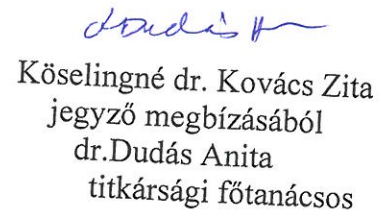 Köselingné dr. Kovács Zita
jegyző megbízásából
dr.Dudás Anita
titkársági főtanácsos